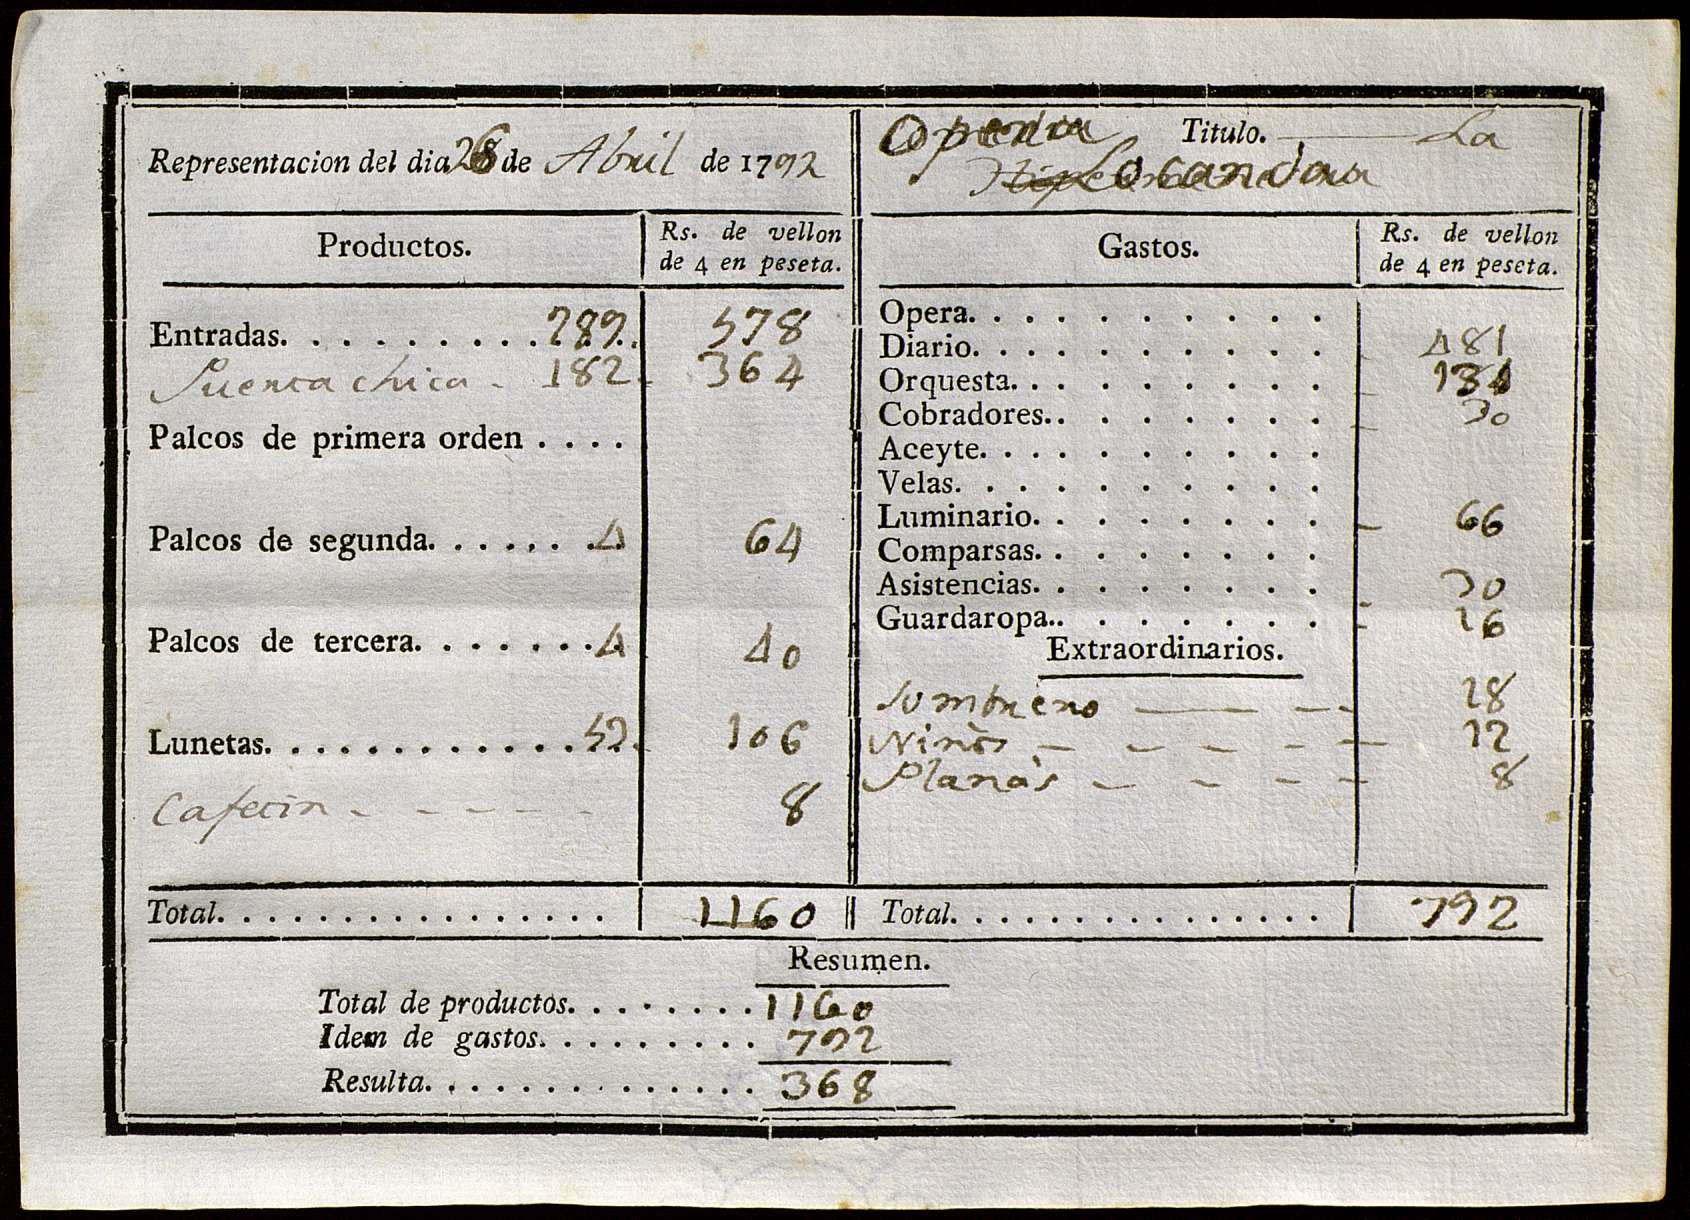 Representacion del dia 26 de Abril de 1792
Opera Titulo. La
Locanda
Productos. Rs. de vellon de 4 en peseta.
Entradas. 289. 578
Puerta chica 182 364
Palcos de primera orden
Palcos de segunda. 4 64
Palcos de tercera. 4 40
Lunetas. 53 106
Cafecin 8
Total. 1160
Gastos. Rs. de vellon de 4 en peseta.
Opera.
Diario. 481
Orquesta. 131
Cobradores. 30
Aceyte.
Velas.
Luminario. 66
Comparsas.
Asistencias. 30
Guardaropa. 16
Extraordinarios.
Sombrero 18
Niños 12
Planas 8
Total. 792
Resumen.
Total de productos. 1160
Idem de gastos. 792
Resulta. 368